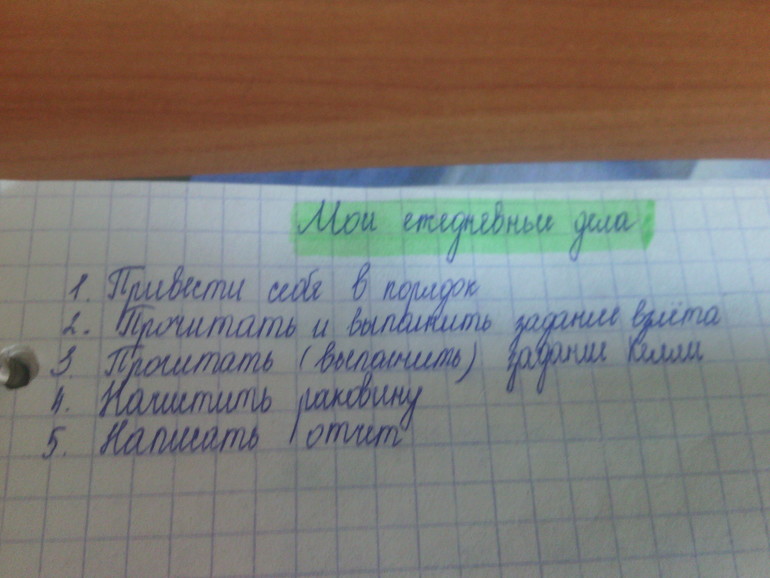 Мои ежедневные дела
1. Привести себя в порядок
2. Прочитать и выполнить задание взлёта
3. Прочитать (выполнить) задание Келли
4. Начистить раковину
5. Написать отчет